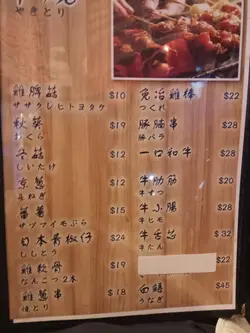 やきとり
雞髀菇 $10
ササクレヒトヨタケ
秋葵 $19
おくら
冬菇 $12
しいたけ
京葱 $12
ながねぎ
蕃薯 $15
サツマイモ
日本青椒仔 $24
ししとう
雞軟骨 $19
なんこつ2本
雞葱串 $18
焼とり
免治雞棒 $22
つくね
豚腩串 $28
豚バラ
一口和牛 $28
牛肋筋 $20
牛すつ
牛小腸 $28
牛ヒモ
牛舌芯 $32
牛たん
$22
白鱔 $45
うなぎ